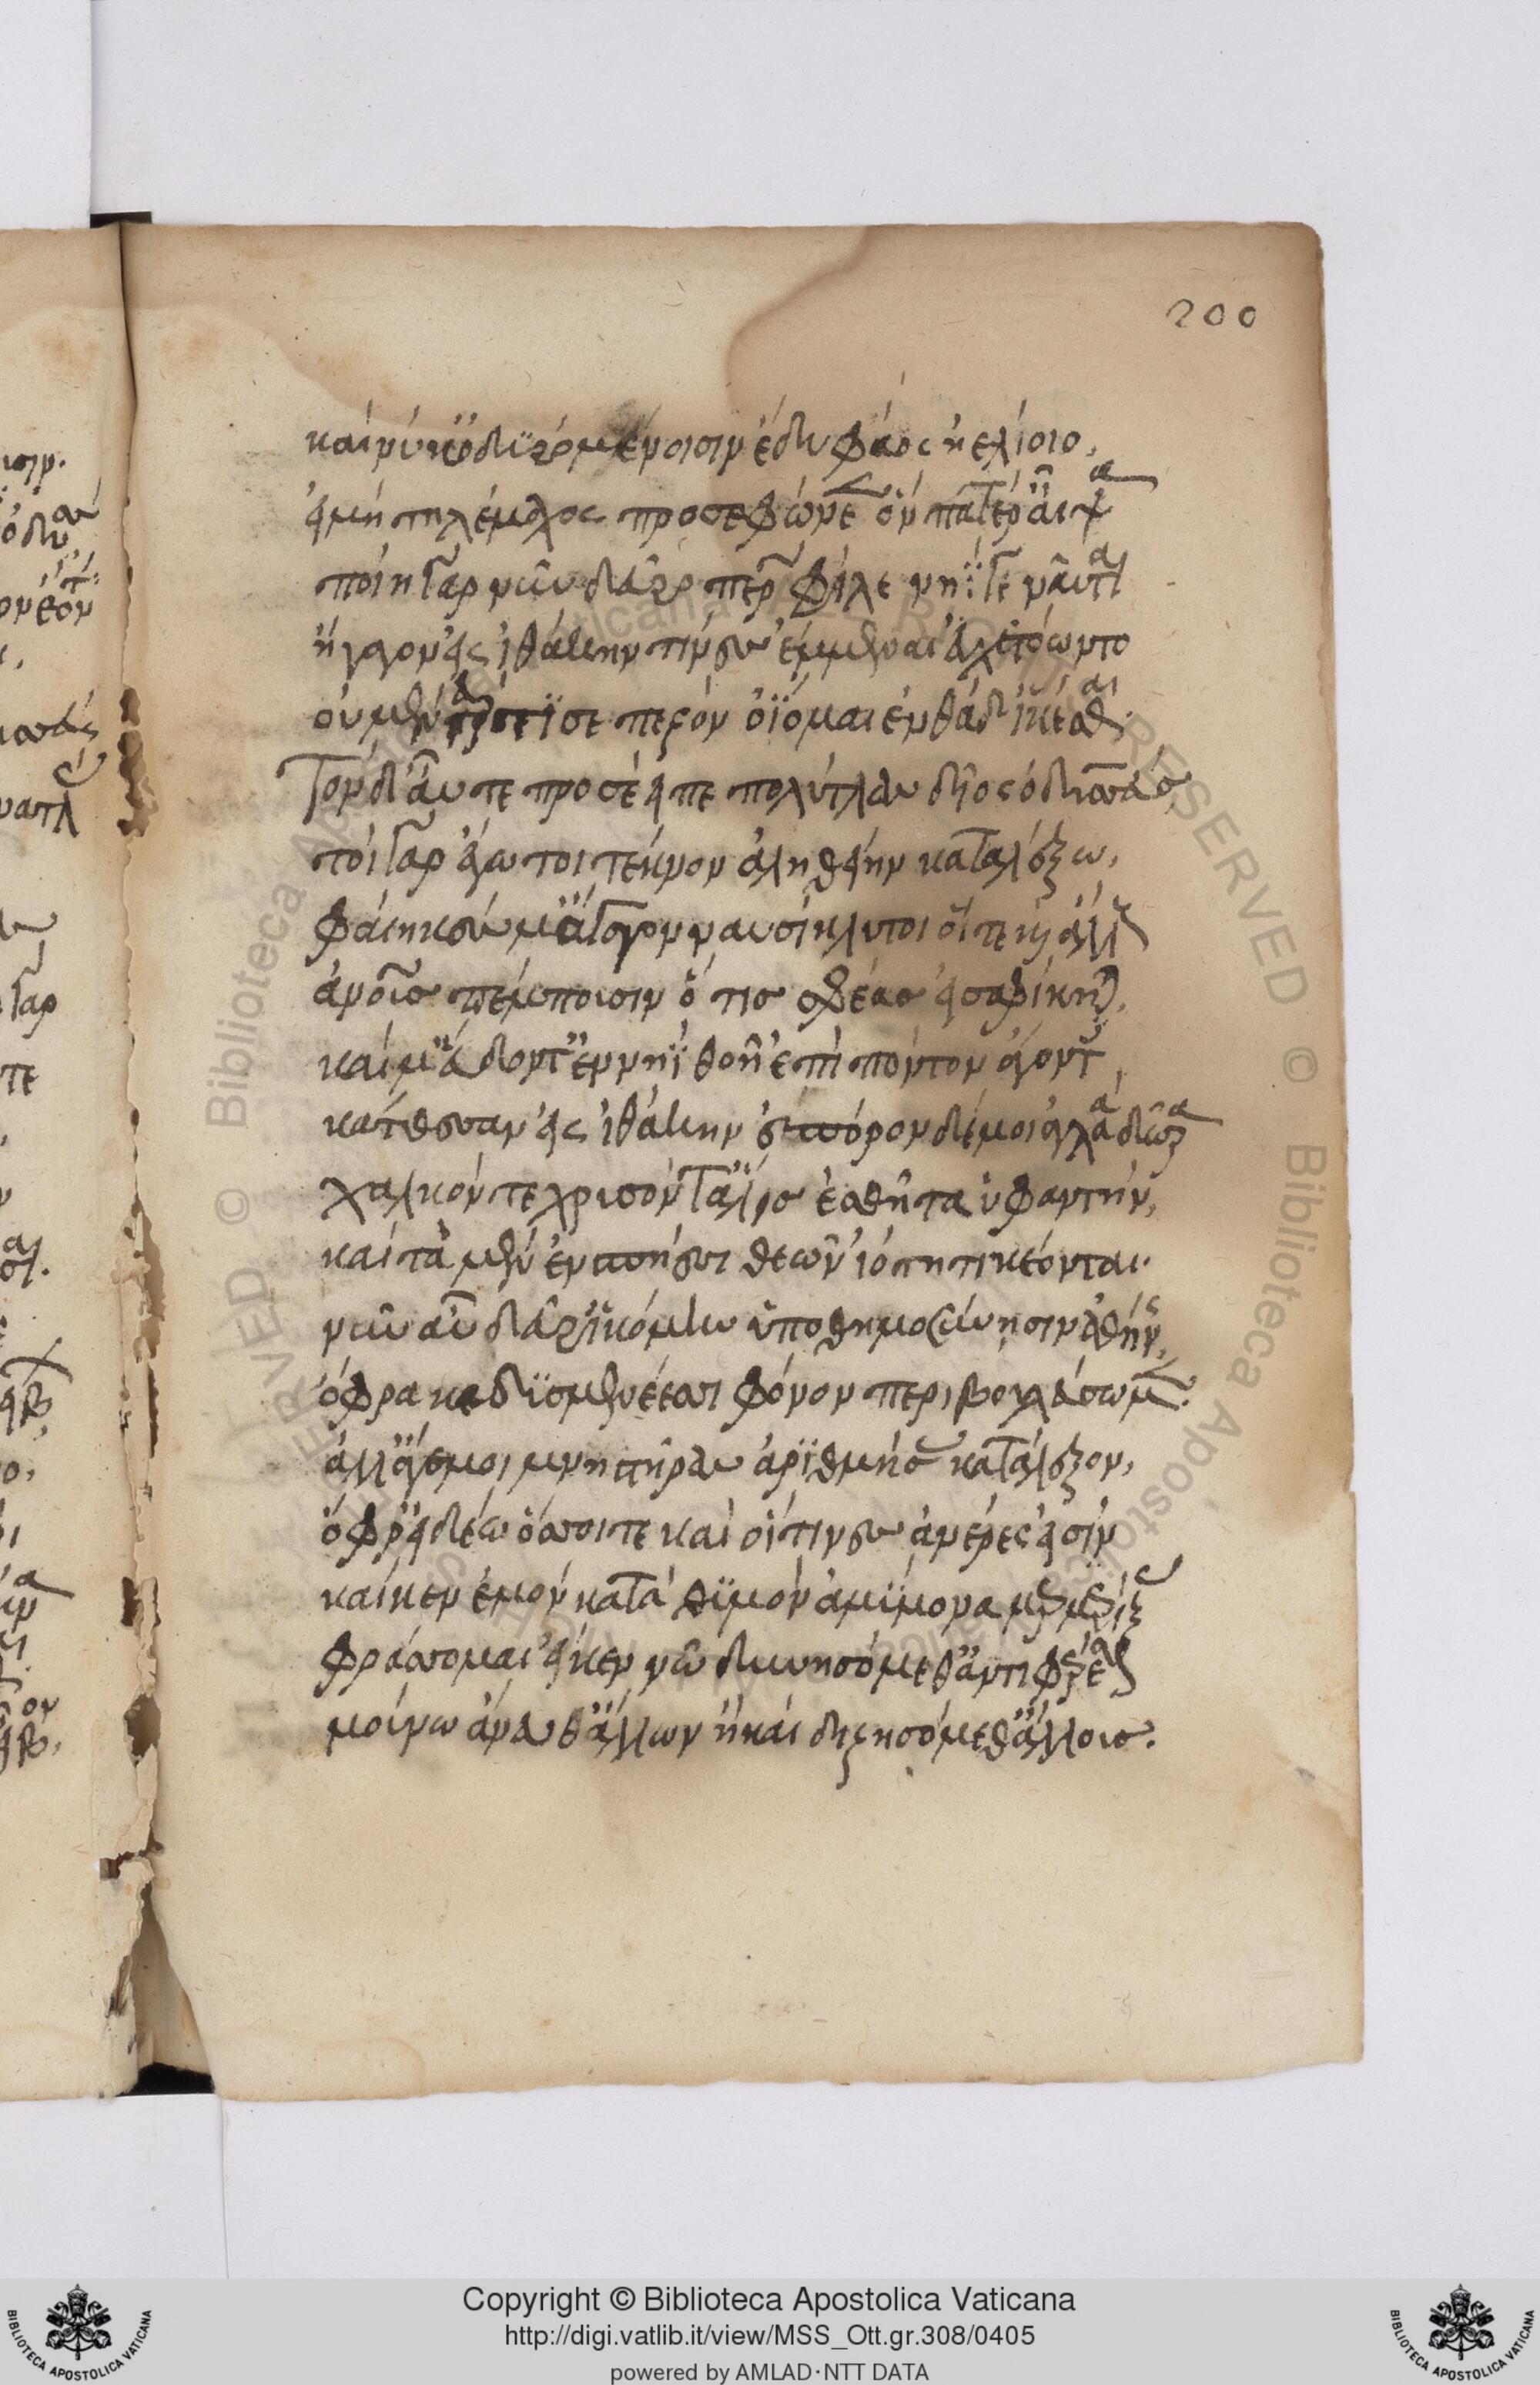 200
καί νύ κ' ὀδυρομένοισιν ἔδυ φάος ἠελίοιο,
εἰ μὴ τηλέμαχος προσεφώνεεν ὃν πατέρ' αἶψα
ποίη γὰρ νῦν δεῦρο πάτερ φίλε νηΐ σε ναῦται
ἤγαγον εἰς ἰθάκην τίνες ἔμμεναι εὐχετόωντο
οὐ μὲν γάρ τι σε πεζὸν ὀΐομαι ἐνθάδ' ἱκέσθαι.
Τὸν δ' αὖτε προσέειπε πολύτλας δῖος ὀδυσσεύς
τοὶ γὰρ ἐγώ τοι τέκνον ἀληθείην καταλέξω,
φαίηκές μ' ἄγαγον ναυσίκλυτοι οἵ τε καὶ ἄλλους
ἀνθρώπους πέμπουσιν ὅ τις σφέας εἰσαφίκηται,
καί μ' εὕδοντ' ἐν νηῒ θοῇ ἐπὶ πόντον ἄγοντες
κάτθεσαν εἰς ἰθάκην ἔπορον δέ μοι ἀγλαὰ δῶρα
χαλκόν τε χρυσόν τε ἅλις ἐσθῆτα ὑφαντήν,
καὶ τὰ μὲν ἐν σπήεσσι θεῶν ἰότητι κέονται.
νῦν αὖ δεῦρ' ἱκόμην ὑποθημοσύνησιν ἀθήνης,
ὄφρα κε δυσμενέεσσι φόνου πέρι βουλεύσωμεν.
ἀλλ' ἄγε μοι μνηστῆρας ἀριθμήσας κατάλεξον,
ὄφρ' εἰδέω ὅσσοι τε καὶ οἵτινες ἀνέρες εἰσίν
καί κεν ἐμὸν κατὰ θυμὸν ἀμύμονα μερμηρίξας
φράσσομαι εἴ κεν νῶϊ δυνησόμεθ' ἀντιφέρεσθαι
μούνω ἄνευθ' ἄλλων ἢ καὶ διζησόμεθ' ἄλλους.
Copyright © Biblioteca Apostolica Vaticana
http://digi.vatlib.it/view/MSS_Ott.gr.308/0405
powered by AMLAD·NTT DATA